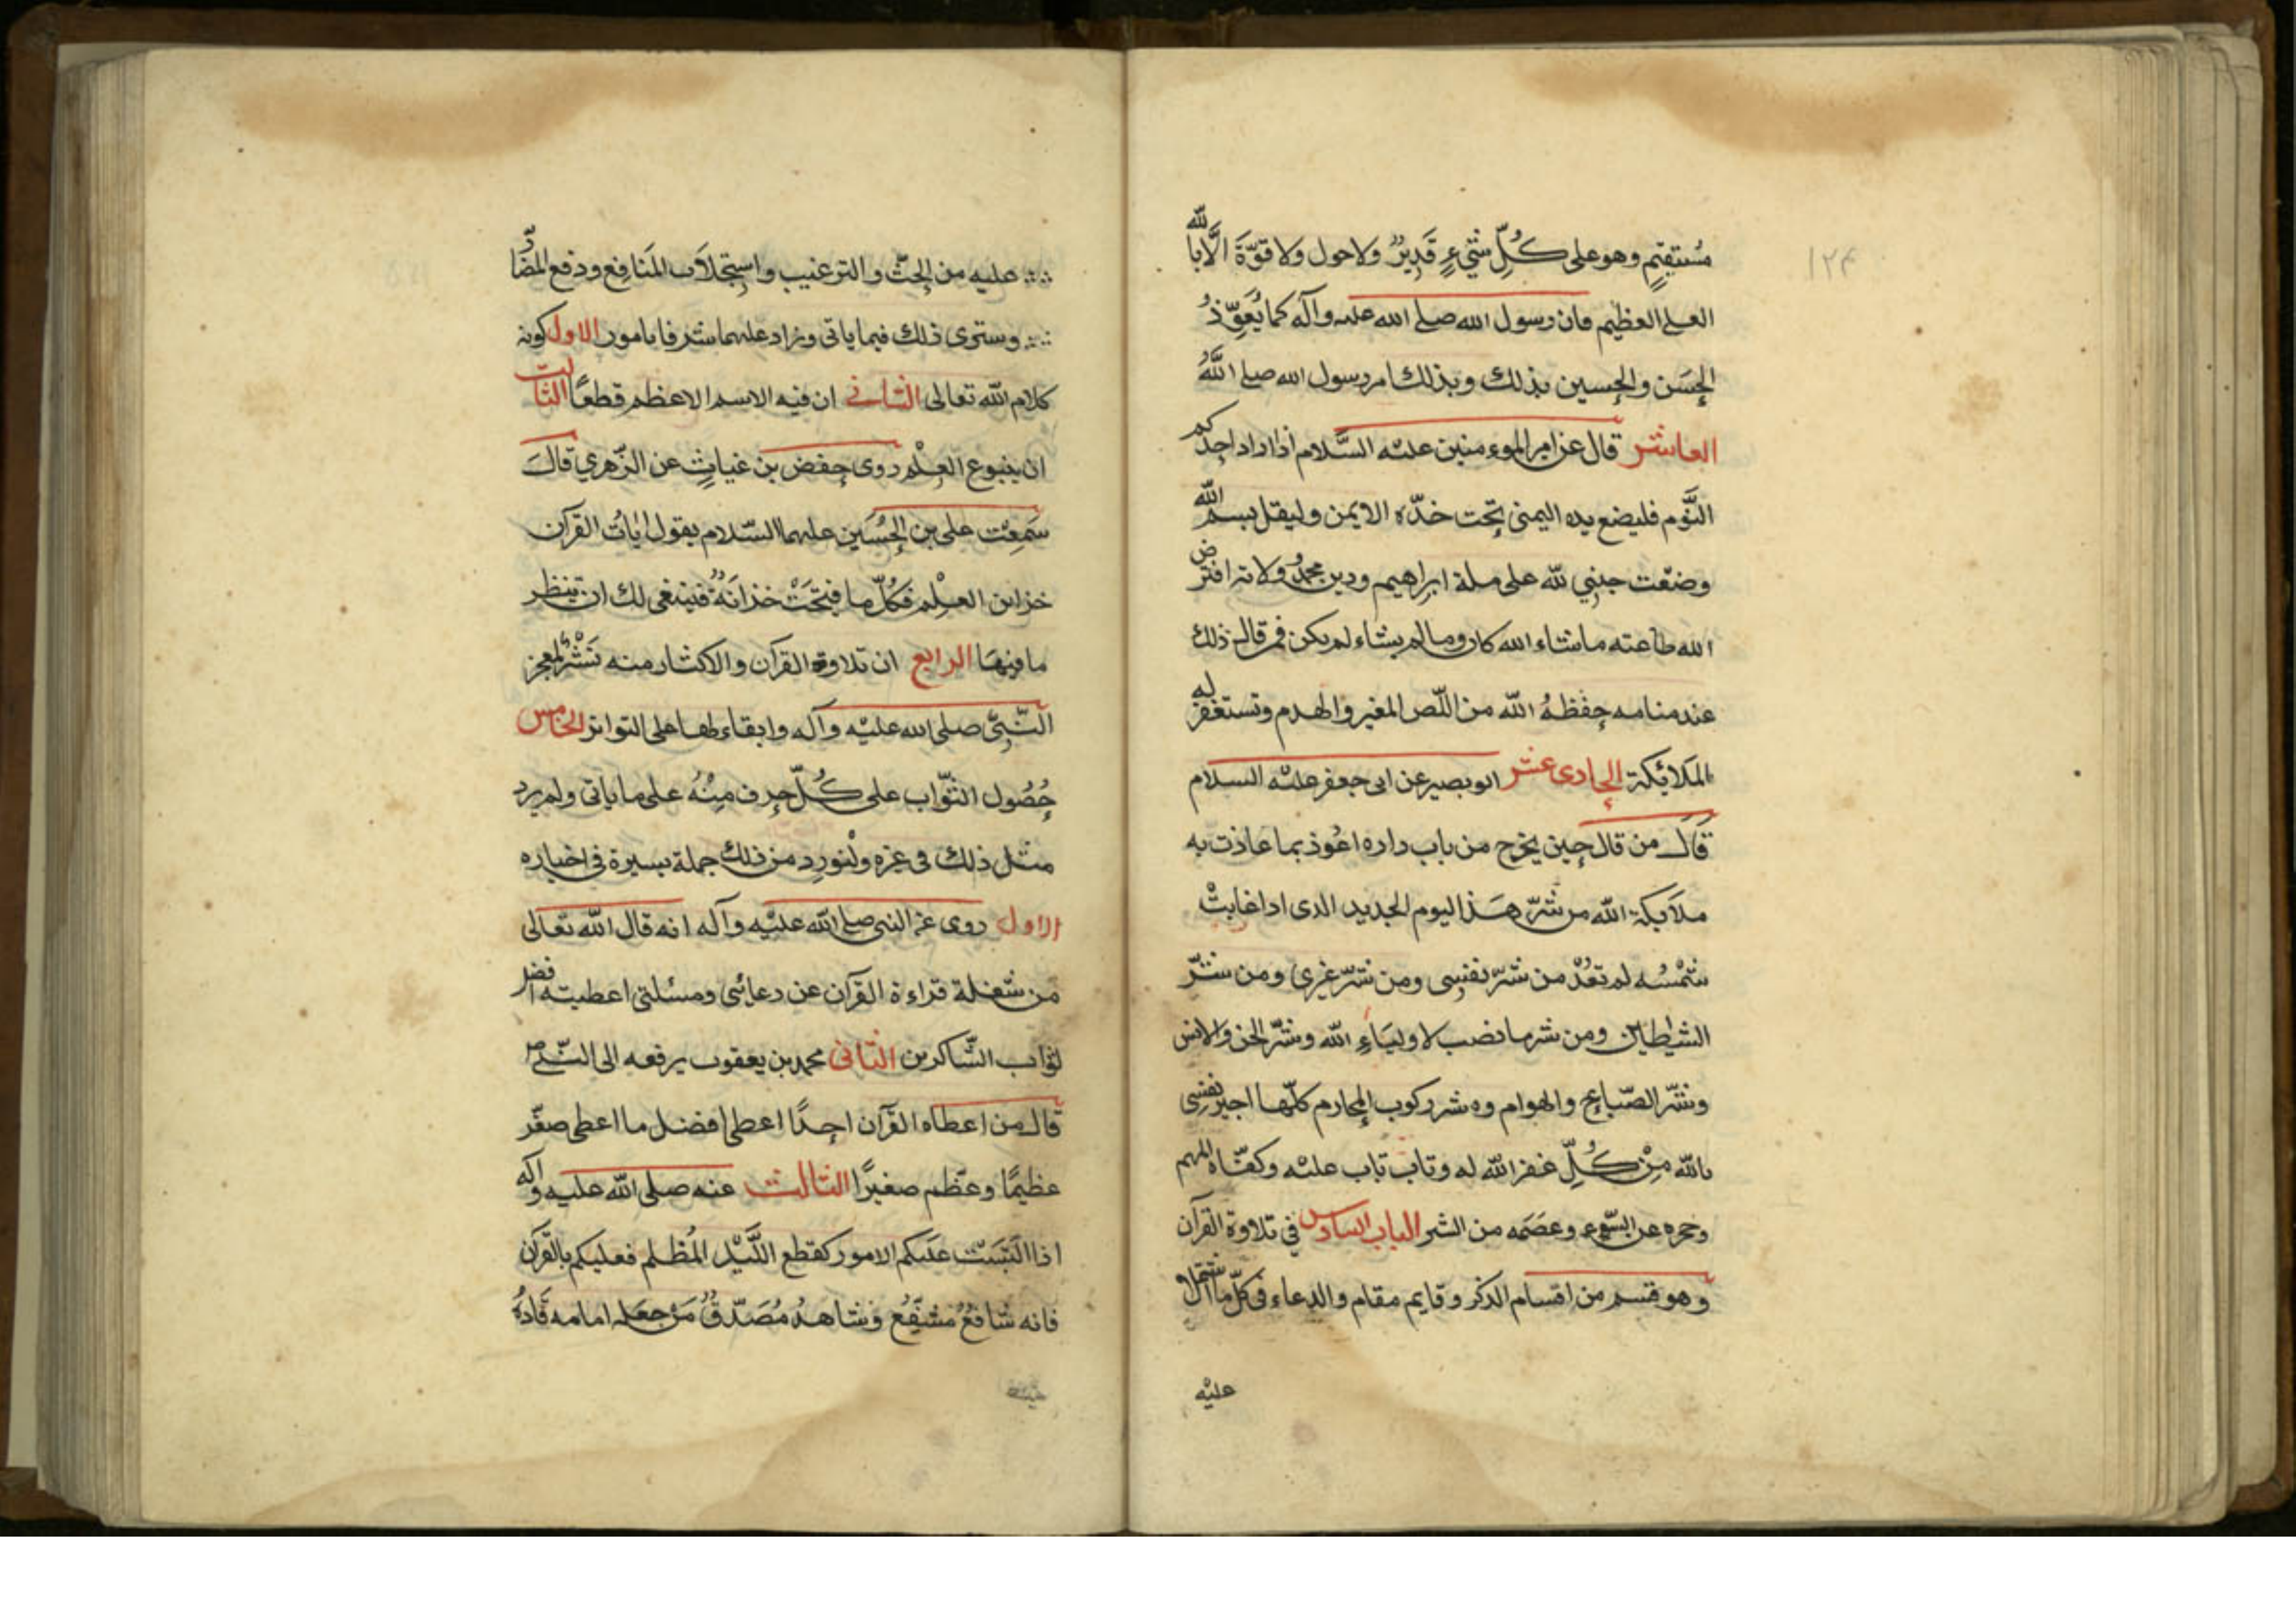 مُستقِيمٍ وهو على كُلِّ شَيْءٍ قَدِيرٌ ولا حول ولا قوّة الّا بالله
العلے العظيم فان رسول الله صلے الله علىه وآله كما يُعَوِّذُ
الحسَن والحسين بذلك وبذلك امر رسول الله صلے اللَّهُ
العاشر قال عن امير الموءمنين علىْه السَّلام اذا اراد احدكم
النَّوم فليضع يده اليمنى تحت خدّه الايمن وليقل بسم الله
وضعْت جنبِي لله على ملة ابراهيم ودين محمّدٍ وولاية من افترض
الله طاعته ماشاء الله كان ومالم يشاء لم يكن فمن قال ذلك
عند منامه حفظهُ الله من اللّص المغير والهدم وتستغفر له
الملائكة الحادى عشر ابو بصير عن ابى جعفر علىْه السلام
قَالَ من قال حين يخرج من باب داره اعُوذ بما عاذت به
ملآيكة الله من شرّ هَذا اليوم الجديد الذى اذا غابتْ
شمْسُه لم تعُدْ من شرّ نفسِى ومن شرّ غيرى ومن شرّ
الشيٰطاين ومن شر ما نصب لاوليَاءِ الله وشرّ الجن والانس
وشرّ الصّباع والهوام وه شر ركوب المحارم كلّها اجير نفسى
بالله مِنْ كُلِّ غفر الله له وتاب تاب علىْه وكفّاه المهم
وحجره عن السّوء وعصَمه من الشر الباب السادس في تلاوة القرآن
وهو قسم من اقسام الذكر وقايم مقام والدعاء فى كلّ ما اشتملا
عليْه
عليه من الحثّ والترغيب واستِجْلاب المَنافِع ودفع المضّار
وسترى ذلك فيما ياتى وزاد علىهما شرفا بامور الاول كونه
كلام الله تعالى الثانے ان فيه الاسم الاعظم قطعًا الثالث
ان ينبوع العِلْم روى حفص بن غياثٍ عن الزّهري قالَ
سَمِعْت على بن الحُسَين علىهما السّلام يقول اٰياتُ القرآن
خزاين العِلْم فكُلّ ما فتِحَتْ خزانَةٌ فينبغى لك ان تنظر
ما فيهَا الرابع ان تلاوة القرآن والاكثار منه نَشْرٌ لمعجز
النّبِىّ صلى الله علىْه وآله وابقاء لها على التواتر الخامس
حُصُول الثّواب على كُلّ حرف مِنْهُ على ما ياتى ولم يرد
مثل ذلك فى غيره ولْنورِد من ذلك جملة يسيرة في اخباره
الاول روى عن النبى صلے الله عليْه وآله انه قال الله تعالى
من شغلة قراءة القرآن عن دعائى ومسئلتى اعطيته افضل
ثواب الشّاكرين الثانى محمد بن يعقوب يرفعه الى النّبىّ ص
قال من اعطاه القرآن احدًا اعطى افضل ما اعطى صغّر
عظيمًا وعظّم صغيرًا الثالث عنه صلى الله عليه وآله
اذا التَبَسَتْ علىكم الامور كقطع اللَّيْل المُظلم فعليكم بالقرآن
فانه شافعٌ مُشَفّعٌ وشاهدٌ مُصَدّقٌ مَن جعَله امامه قَادَهُ